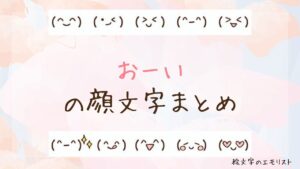 (^‿^) (•ᴗ<) (>ᴗ<) (^−^) (>ᗜ<)
おーい
の顔文字まとめ
(^−^)✨ (^ᴗ^) (^ᗜ^) (◡ᴗ◡) (♡ᴗ♡)
絵文字のエモリスト